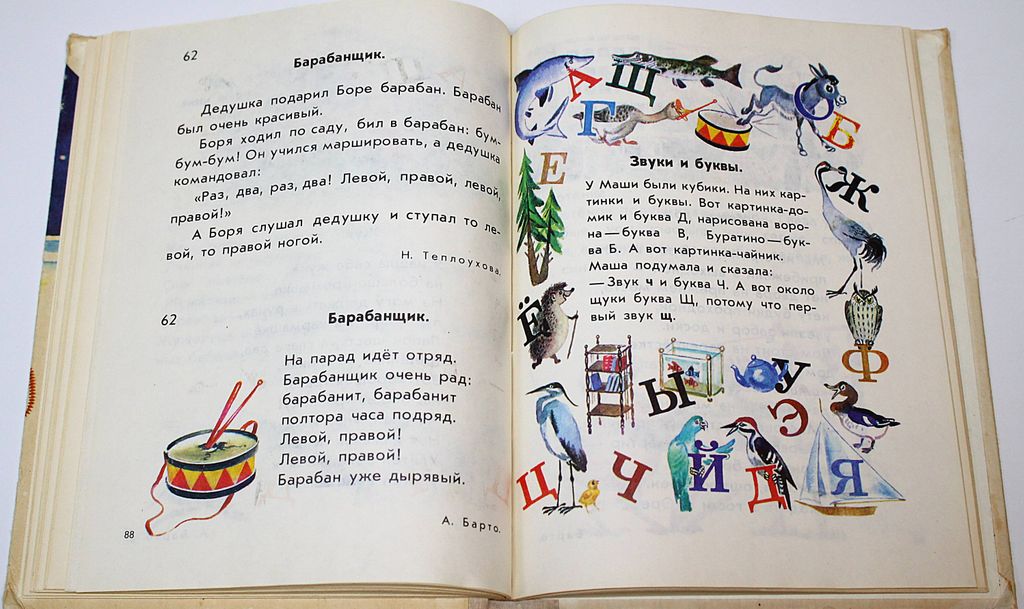 62
Барабанщик.
Дедушка подарил Боре барабан. Барабан
был очень красивый.
Боря ходил по саду, бил в барабан: бум-
бум-бум! Он учился маршировать, а дедушка
командовал:
«Раз, два, раз, два! Левой, правой, левой,
правой!»
А Боря слушал дедушку и ступал то ле-
вой, то правой ногой.
Н. Теплоухова.
62
Барабанщик.
На парад идёт отряд.
Барабанщик очень рад:
барабанит, барабанит
полтора часа подряд.
Левой, правой!
Левой, правой!
Барабан уже дырявый.
А. Барто.
88
А Щ
Г О Б
Е Ж
Звуки и буквы.
У Маши были кубики. На них кар-
тинки и буквы. Вот картинка-до-
мик и буква Д, нарисована воро-
на — буква В, Буратино — бук-
ва Б. А вот картинка-чайник.
Маша подумала и сказала:
— Звук ч и буква Ч. А вот около
щуки буква Щ, потому что пер-
вый звук щ.
Ё Ф
Ы У Э
Ц Ч Й Д Я